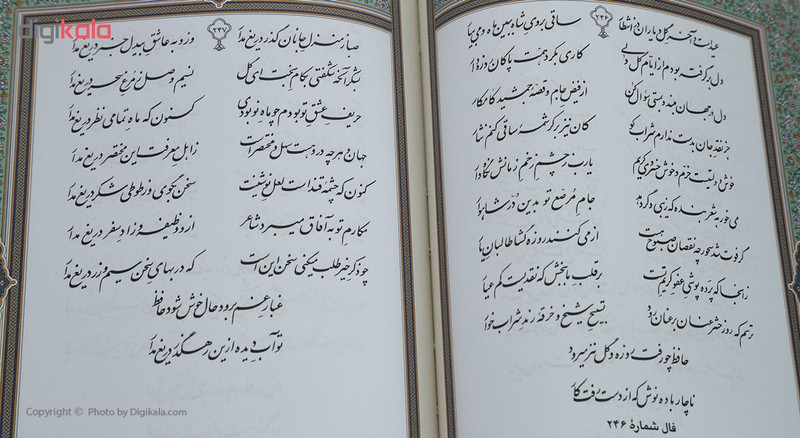 digikala
۲۴۶
عید است و آخر گل و یاران در انتظار
ساقی به روی شاه ببین ماه و می بیار
دل برگرفته بودم از ایام گل ولی
کاری بکرد همت پاکان روزه دار
دل در جهان مبند و به مستی سؤال کن
از فیض جام و قصه جمشید کامگار
جز نقد جان به دست ندارم شراب کو
کان نیز بر کرشمه ساقی کنم نثار
خوش دولتیست خرم و خوش خسروی کریم
یارب ز چشم زخم زمانش نگاه دار
می خور به شعر بنده که زیبی دگر دهد
جام مرصع تو بدین در شاهوار
گر فوت شد سحور چه نقصان صبوح هست
از می کنند روزه گشا طالبان یار
زانجا که پرده پوشی عفو کریم تست
بر قلب ما ببخش که نقدیست کم عیار
ترسم که روز حشر عنان بر عنان رود
تسبیح شیخ و خرقه رند شراب خوار
حافظ چو رفت روزه و گل نیز می رود
ناچار باده نوش که از دست رفت کار
فال شمارهٔ ۲۴۶
۲۴۷
صبا ز منزل جانان گذر دریغ مدار
وز او به عاشق بیدل خبر دریغ مدار
به شکر آنکه شکفتی به کام بخت ای گل
نسیم وصل ز مرغ سحر دریغ مدار
حریف عشق تو بودم چو ماه نو بودی
کنون که ماه تمامی نظر دریغ مدار
جهان و هرچه در او هست سهل و مختصر است
ز اهل معرفت این مختصر دریغ مدار
کنون که چشمه قند است لعل نوشینت
سخن بگوی و ز طوطی شکر دریغ مدار
مکارم تو به آفاق می برد شاعر
از او وظیفه و زاد سفر دریغ مدار
چو ذکر خیر طلب می کنی سخن این است
که در بهای سخن سیم و زر دریغ مدار
غبار غم برود حال خوش شود حافظ
تو آب دیده از این رهگذر دریغ مدار
Copyright © Photo by Digikala.com